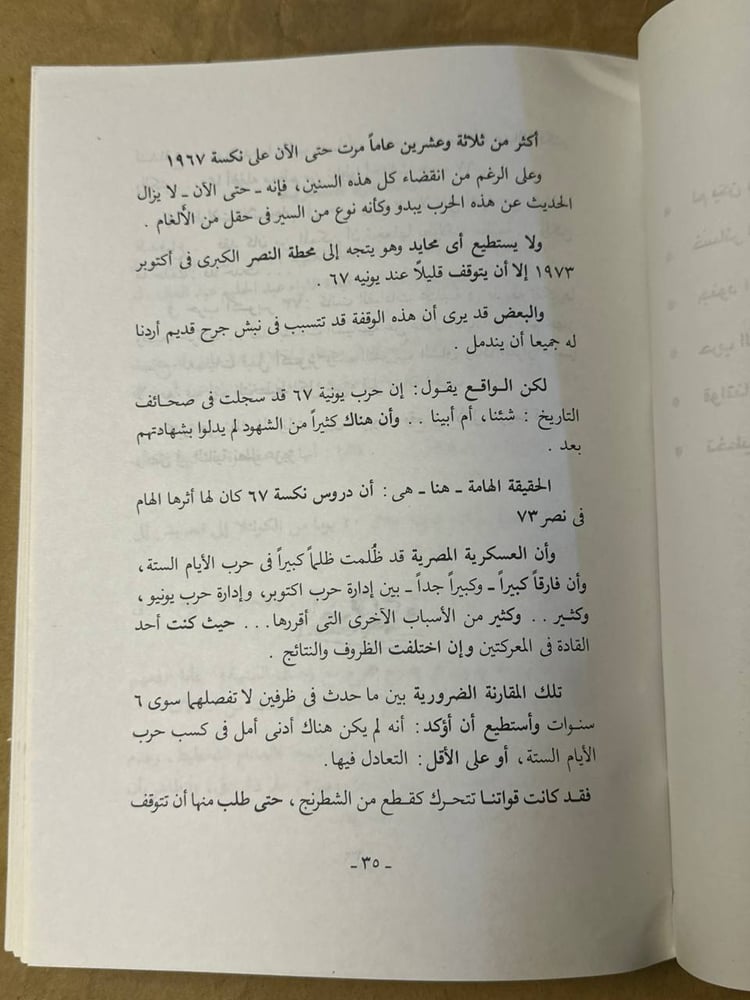 أكثر من ثلاثة وعشرين عاماً مرت حتى الآن على نكسة ١٩٦٧
وعلى الرغم من انقضاء كل هذه السنين، فإنه ـ حتى الآن ـ لا يزال
الحديث عن هذه الحرب يبدو وكأنه نوع من السير فى حقل من الألغام .
ولا يستطيع أى محايد وهو يتجه إلى محطة النصر الكبرى فى أكتوبر
١٩٧٣ إلا أن يتوقف قليلاً عند يونيه ٦٧ .
والبعض قد يرى أن هذه الوقفة قد تتسبب فى نبش جرح قديم أردنا
له جميعا أن يندمل .
لكن الـواقع يقول: إن حرب يونية ٦٧ قد سجلت فى صحـائف
التاريخ : شئنا، أم أبينا . . وأن هناك كثيراً من الشهود لم يدلوا بشهادتهم
بعد .
الحقيقة الهامة ـ هنا ـ هى: أن دروس نكسة ٦٧ كان لها أثرها الهام
فى نصر ٧٣
وأن العسكرية المصرية قد ظُلمت ظلماً كبيراً فى حرب الأيام الستة،
وأن فارقاً كبيراً ـ وكبيراً جداً ـ بين إدارة حرب اكتوبر، وإدارة حرب يونيو ،
وكثـير . . وكثير من الأسباب الآخرى التى أقررها. . . حيث كنت أحد
القادة فى المعركتين وإن اختلفت الظروف والنتائج .
تلك المقارنة الضرورية بين ما حدث فى ظرفين لا تفصلهما سوى ٦
سنـوات وأستطيع أن أؤكد: أنه لم يكن هناك أدنى أمل فى كسب حرب
الأيام الستة، أو على الأقل: التعادل فيها.
فقـد كانت قواتنـا تتحـرك كقـطع من الشطرنج ، حتى طلب منها أن تتوقف
ـ ٣٥ ـ